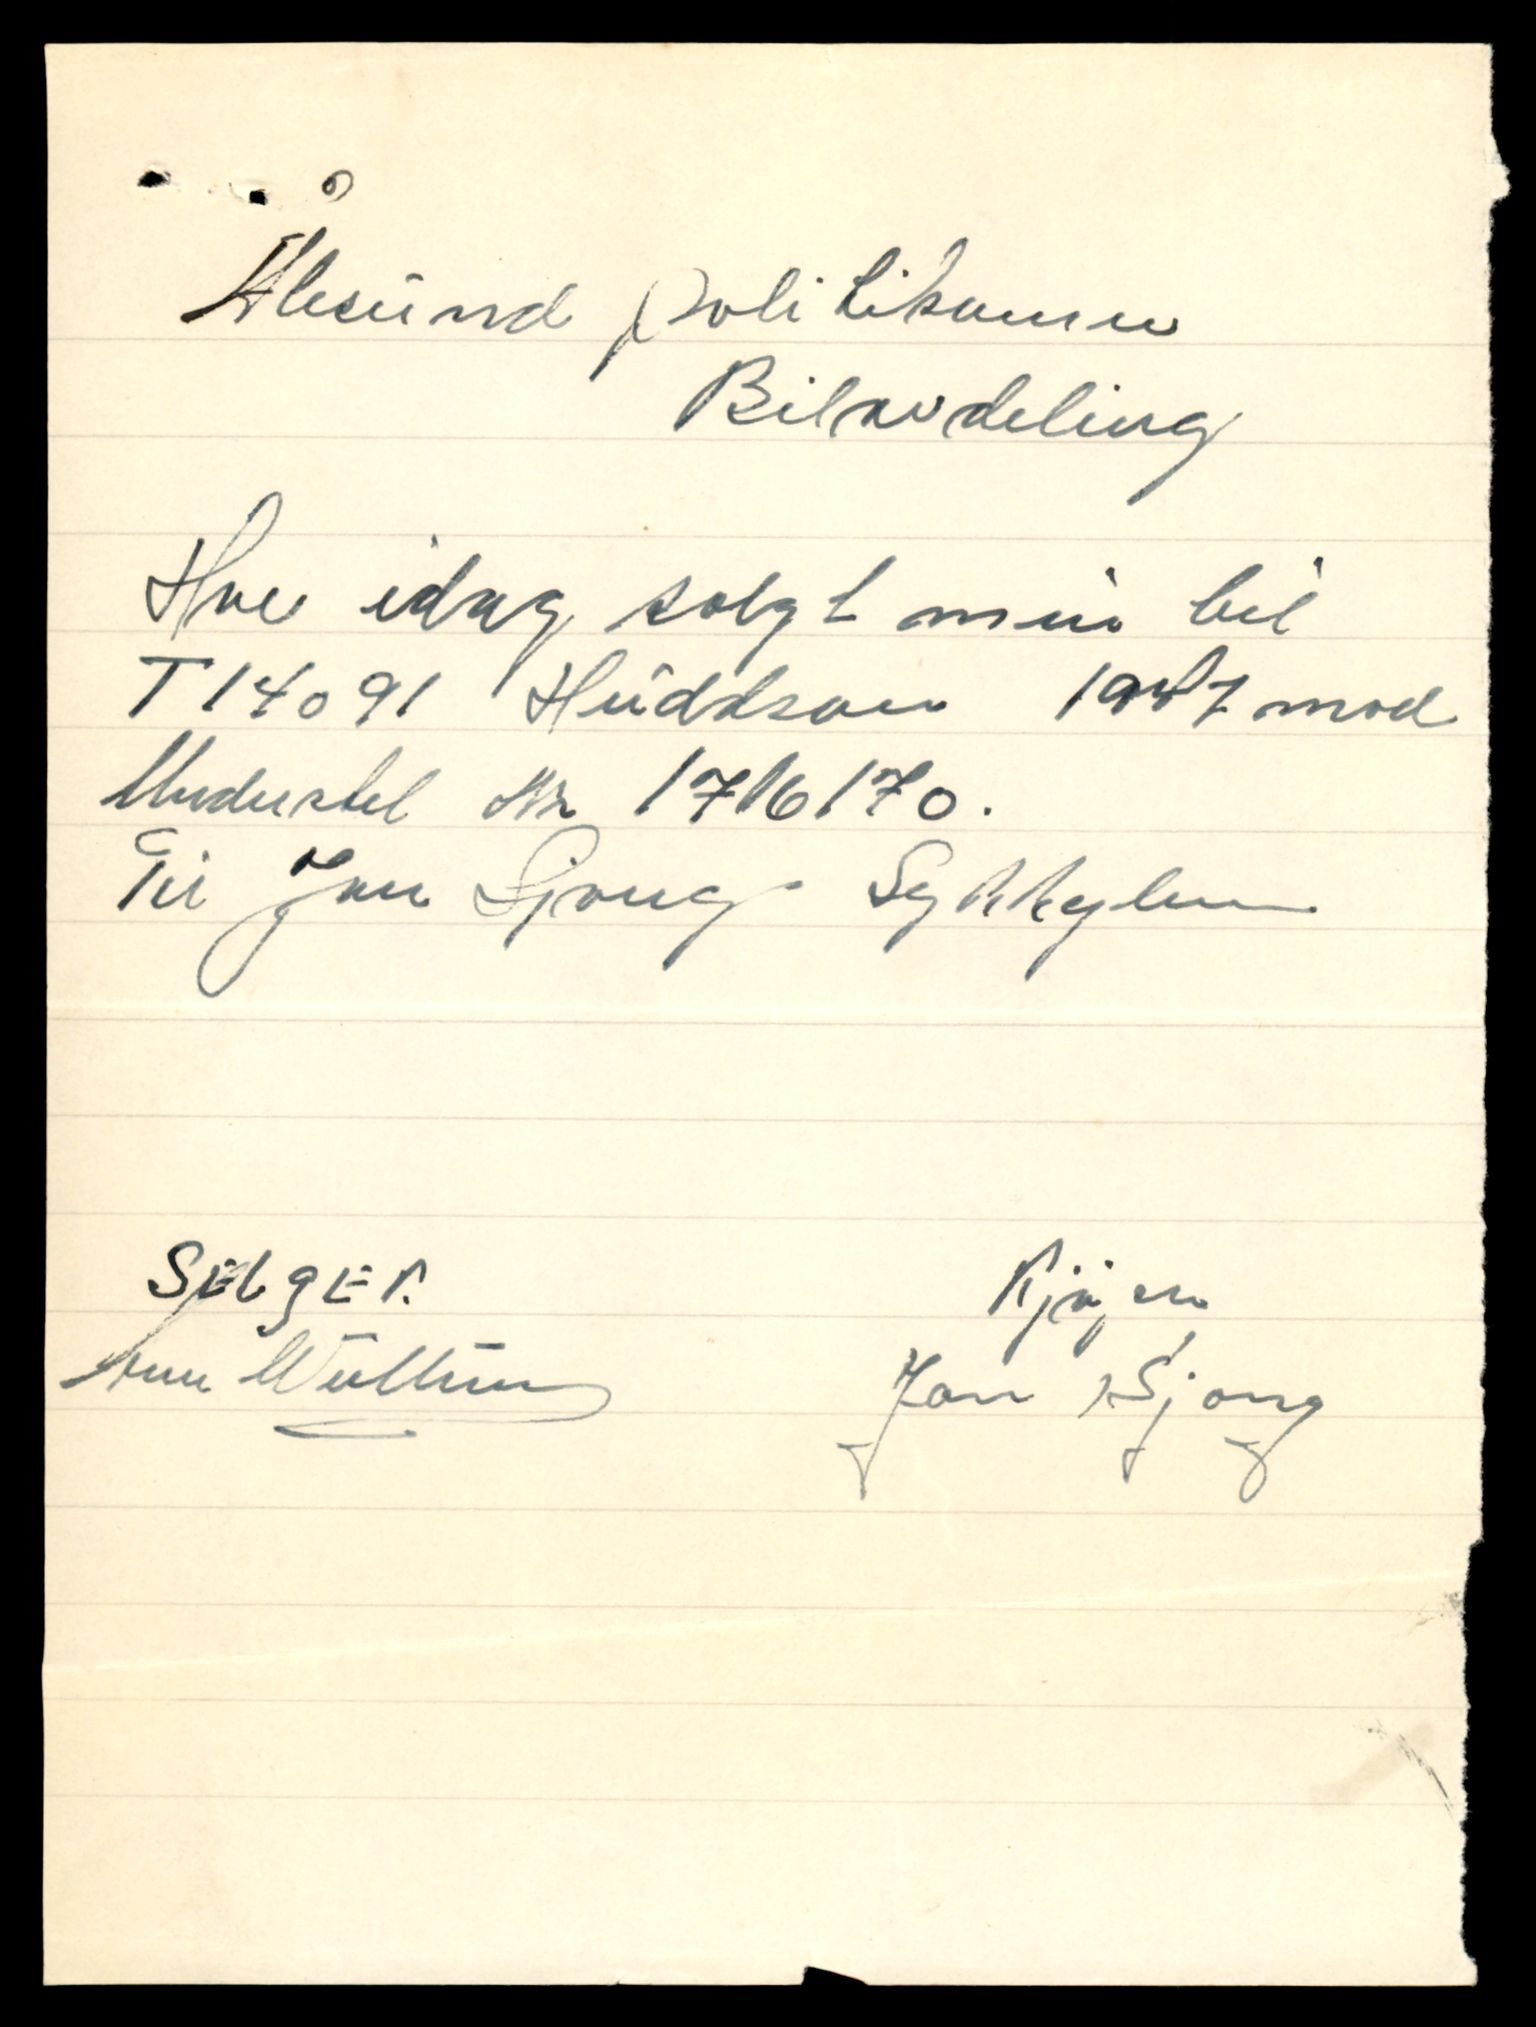 Ålesund politikammer
Bilavdeling
Har idag solgt min bil
T 14091 Huddson 1947 mod
Understel Nr 1716170.
Til Jan Sjong Sykkylven
SELgER.
Kjøper
Jan Sjong